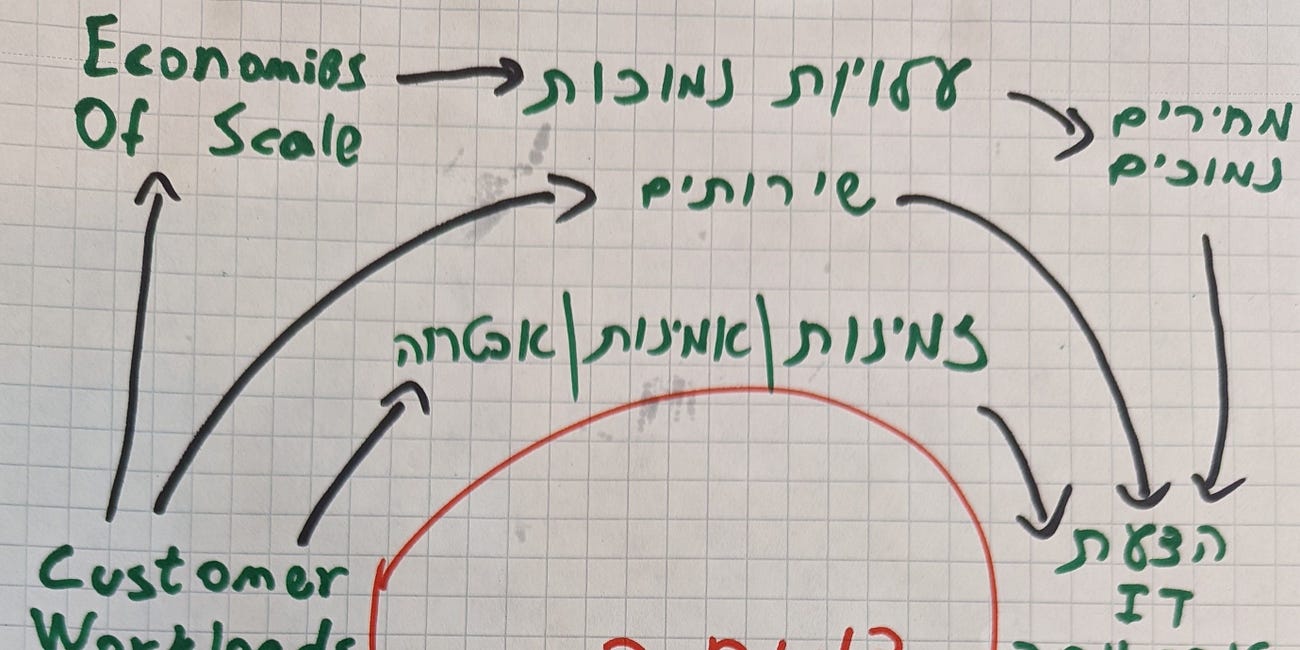 Economies
Of Scale
עלויות נמוכות
מחירים
נמוכים
שירותים
זמינות | אמינות | אבטחה
Customer
Workloads
הצעת
IT